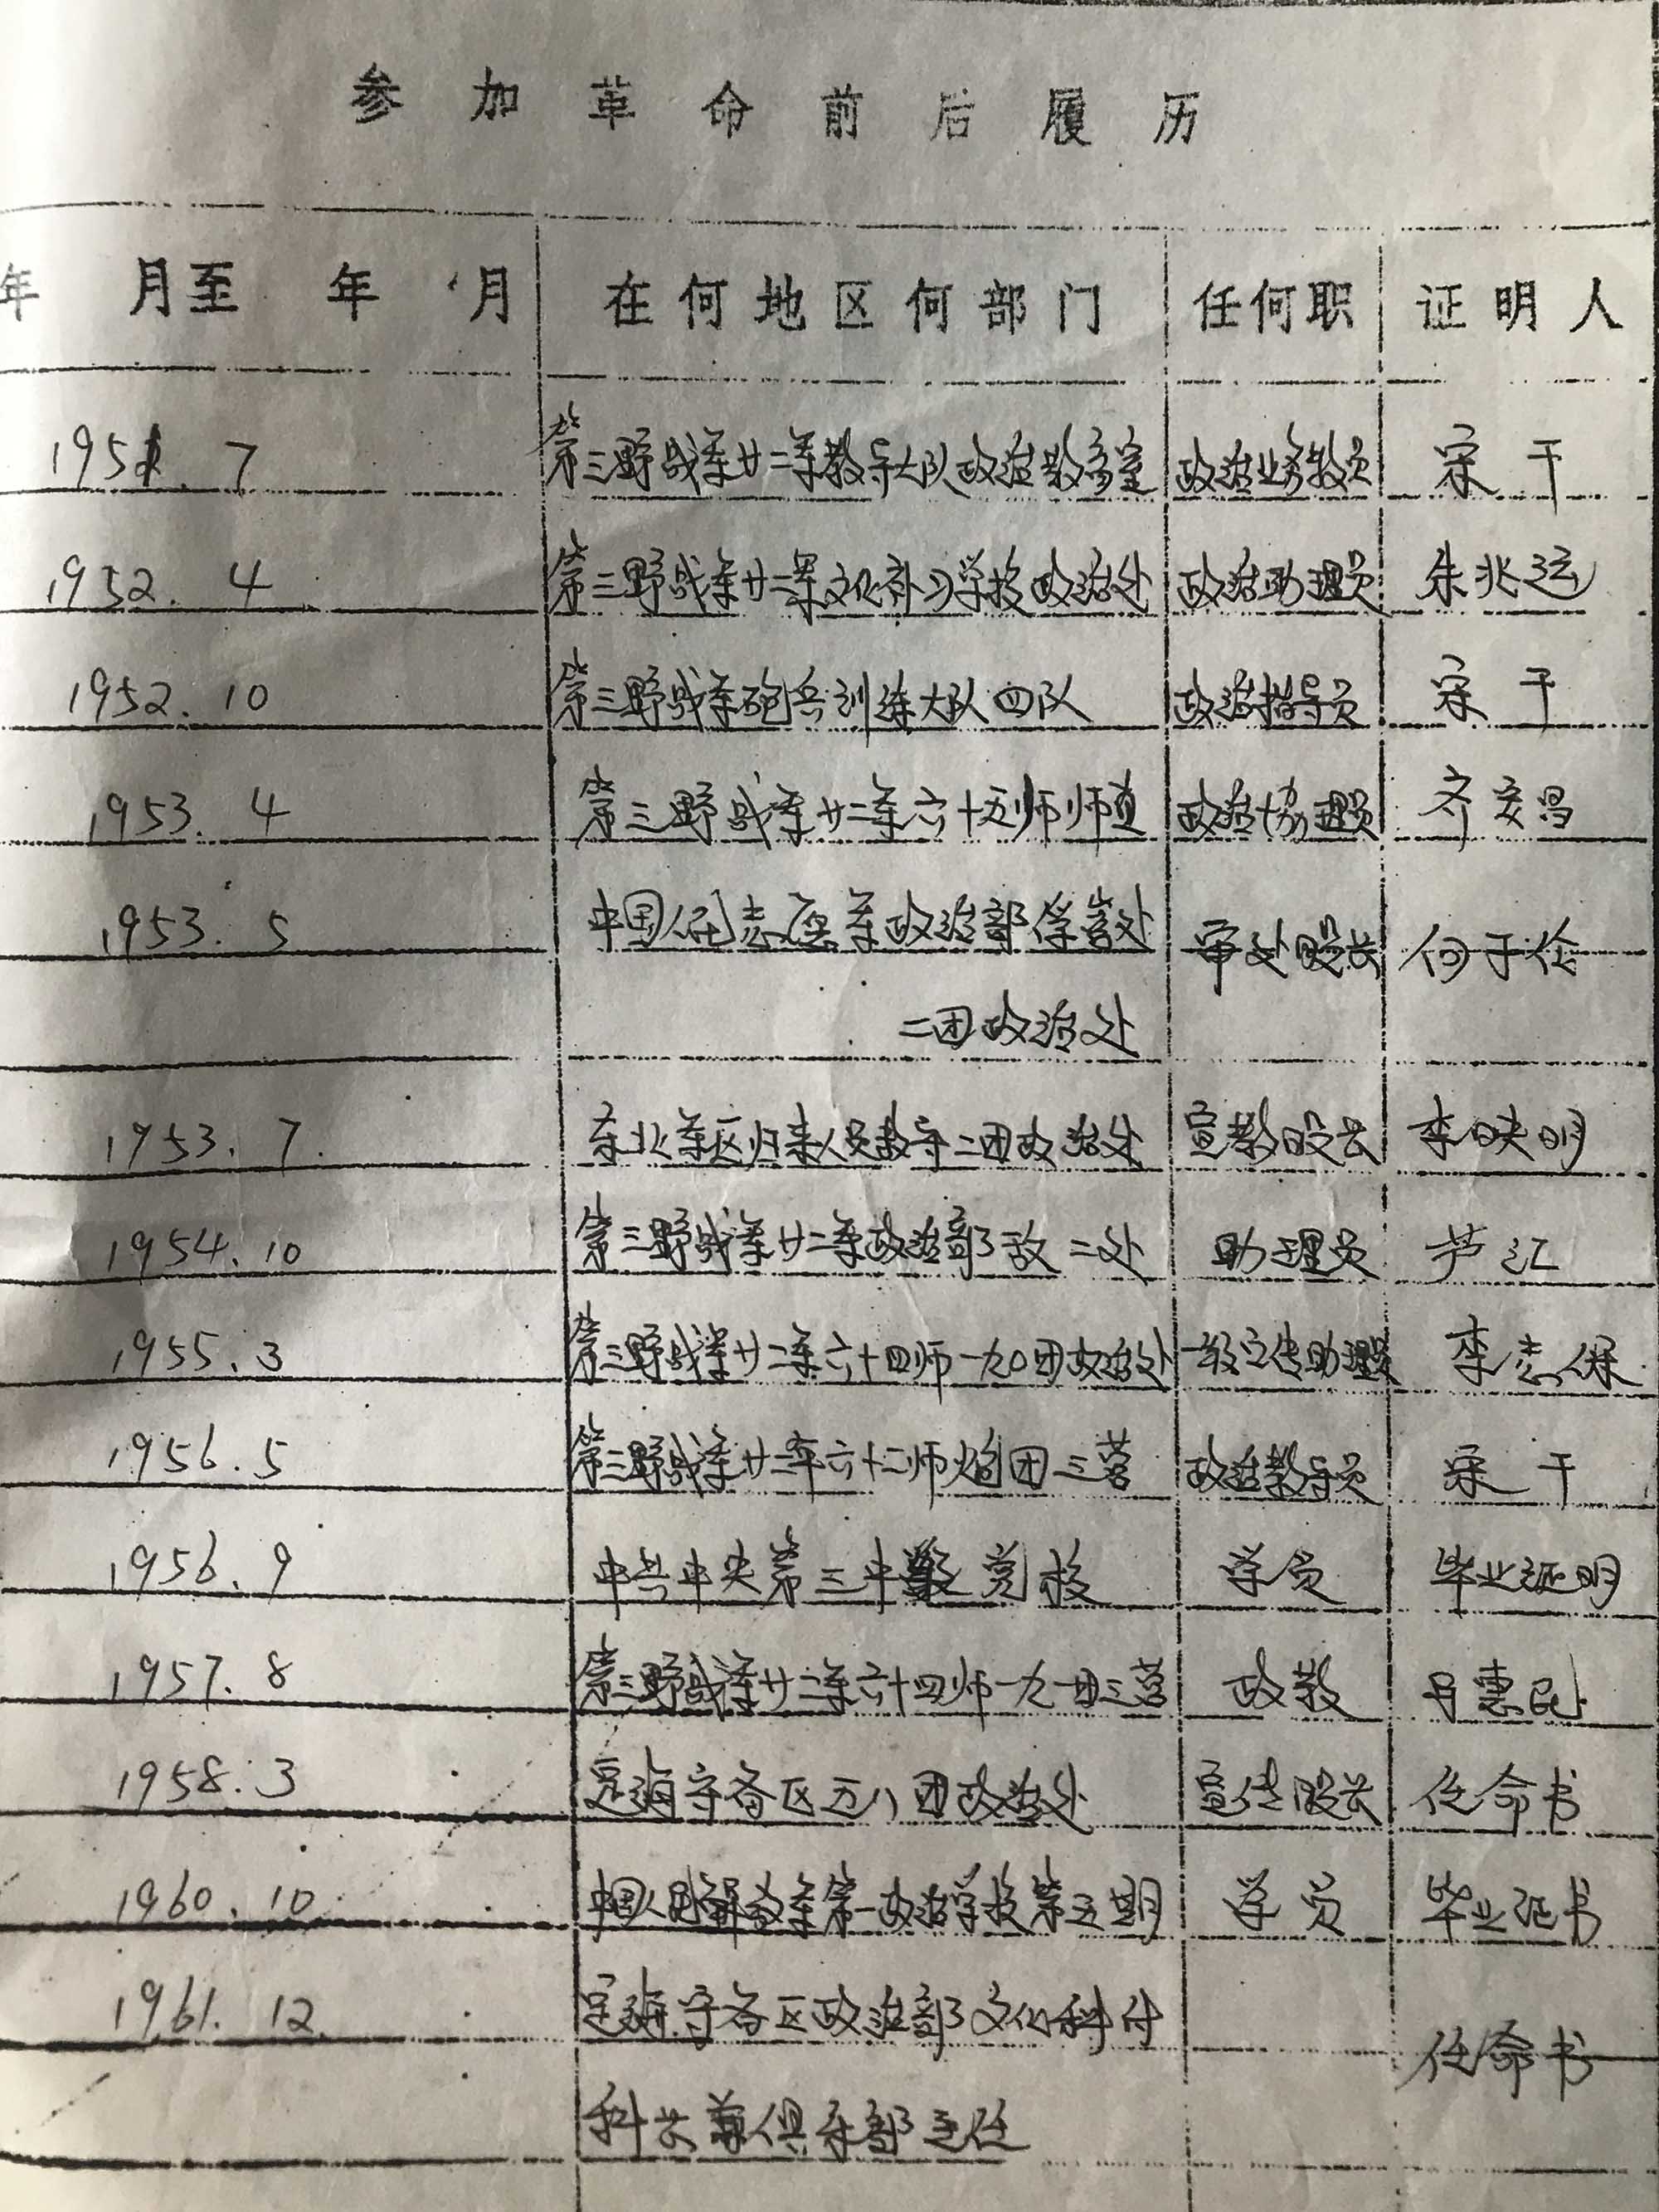 参加革命前后履历
年 月至 年 月 在何地区何部门 任何职 证明人
1951. 7 第三野战军廿二军教导大队政治教育室 政治业务教员 宋干
1952. 4 第三野战军廿二军文化补习学校政治处 政治助理员 朱兆运
1952. 10 第三野战军砲兵训练大队四队 政治指导员 宋干
1953. 4 第三野战军廿二军六十五师师直 政治协理员 齐 昌
1953. 5 中国人民志愿军政治部俘管处 审处股长 何于伦
二团政治处
1953. 7. 东北军区归来人员教导二团政治处 宣教股长 李映明
1954. 10 第三野战军廿二军政治部敌二处 助理员 芦江
1955. 3 第三野战军廿二军六十四师一九〇团政治处 一级宣传助理员 李志保
1956. 5 第三野战军廿二军六十二师炮团三营 政治教导员 宋干
1956. 9 中共中央第三中级党校 学员 毕业证明
1957. 8 第三野战军廿二军六十四师一九一团三营 政教 惠民
1958. 3 定海守备区五八团政治处 宣传股长 任命书
1960. 10 中国人民解放军第一政治学校第五期 学员 毕业证书
1961. 12. 定海守备区政治部文化科付 任命书
科长兼俱乐部主任